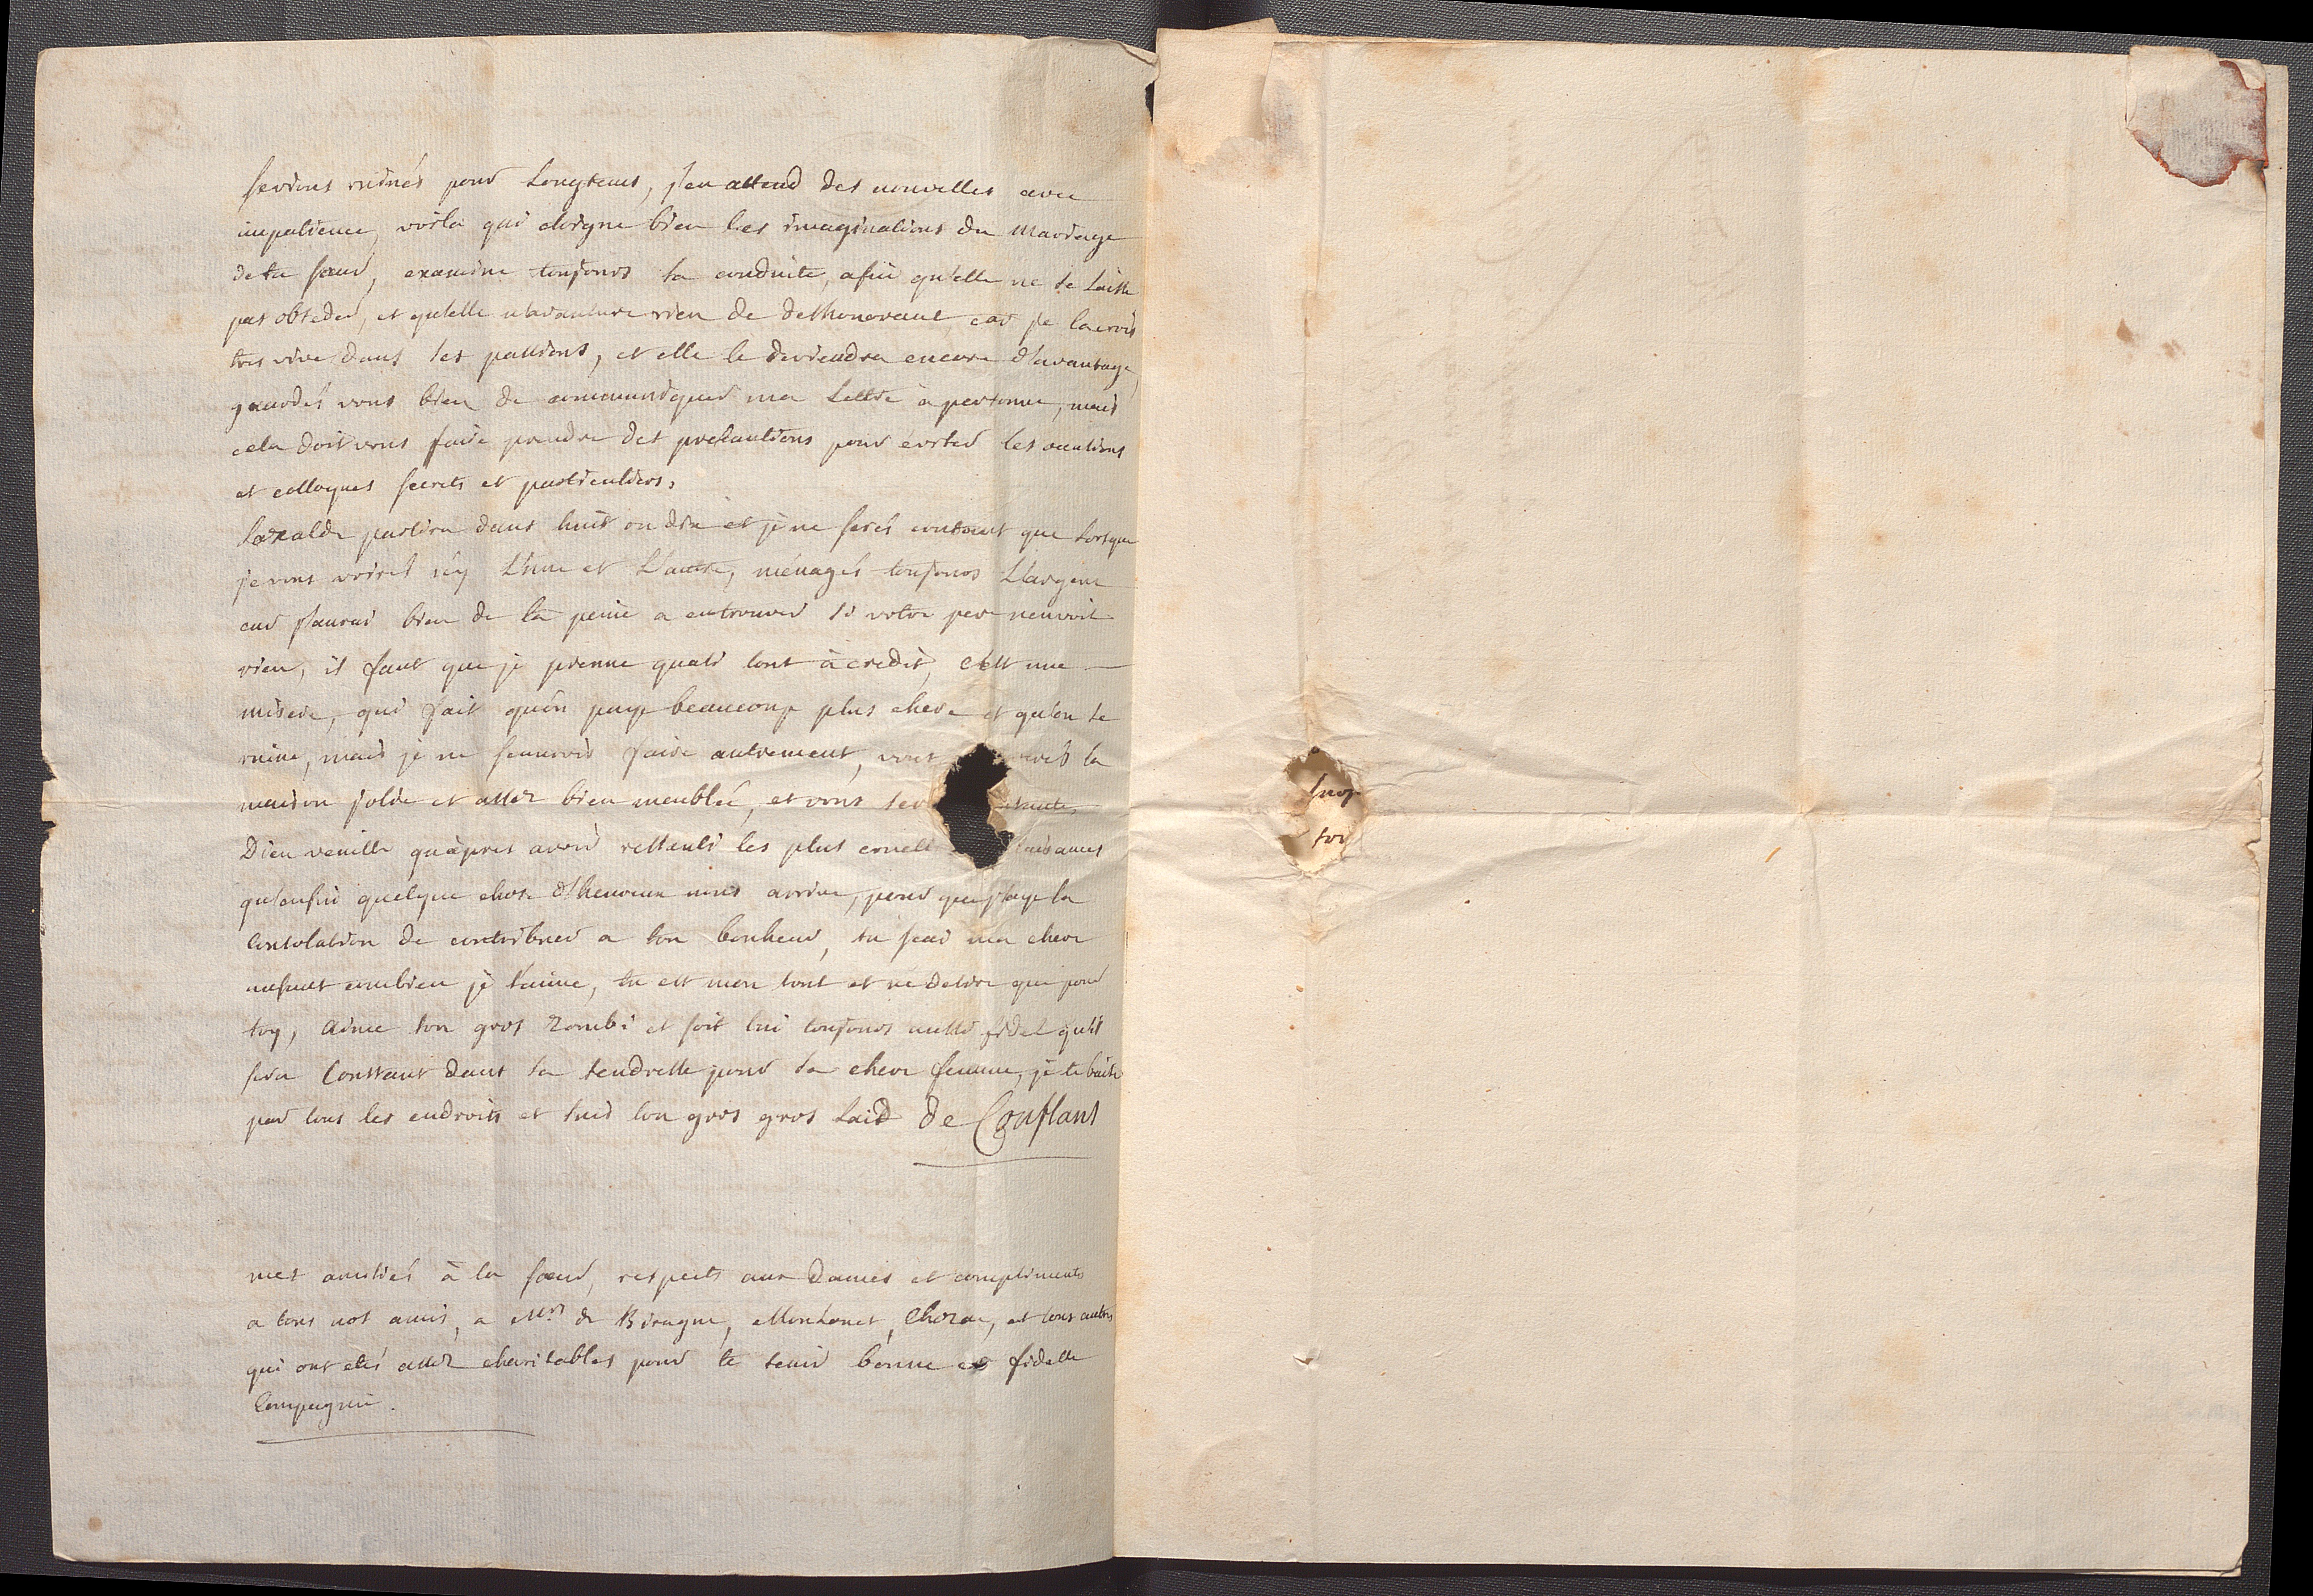 serions ruinés pour Longtems, j'en attend des nouvelles avec
impatience, voila qui eloigne bien les imaginations du Mariage
de ta sœur, examine toujours sa conduite, afin qu'elle ne se laisse
pas obseder, et qu'elle n'avanture rien de deshonorant, car je la crois
tres vive dans ses passions, et elle le deviendra encore d'avantage,
gardés vous bien de communiquer ma Lettre à personne, mais
cela doit vous faire prendre des precautions pour éviter les occasions
et colloques secrets et particuliers,
partira dans huit ou dix et je ne serés content que Lorsque
je vous voirés icy L'une et L'autre, ménagés toujours L'argent
car j'aurai bien de la peine a en trouver si votre pere n'envoit
rien, il faut que je prenne quasi tout à credit, c'est une
misere, qui fait qu'on paye beaucoup plus chere et qu'on se
ruine, mais je ne sçaurois faire autrement, vous la
maison jolie et assez bien meublée, et vous
Dieu veuille qu'apres avoir ressenti les plus cruell
qu'enfin quelque chose d'heureux nous arrive, pour que j'aye la
Consolation de contribuer a ton bonheur, tu sçai ma chere
enfant combien je t'aime, tu est mon tout et ne desire que pour
toy, aime ton gros zombi et soit lui toujours aussi fidel qu'il
sera Constant dans sa tendresse pour sa chere femme, je te baise
par tous les endroits et suis ton gros gros Laid de Conflans
mes amitiés à ta sœur, respects aux Dames et compliments
a tous nos amis, a Mrs de Biragne, et tous autres
qui ont etés assez charitables pour te tenir bonne et fidelle
Compagnie.